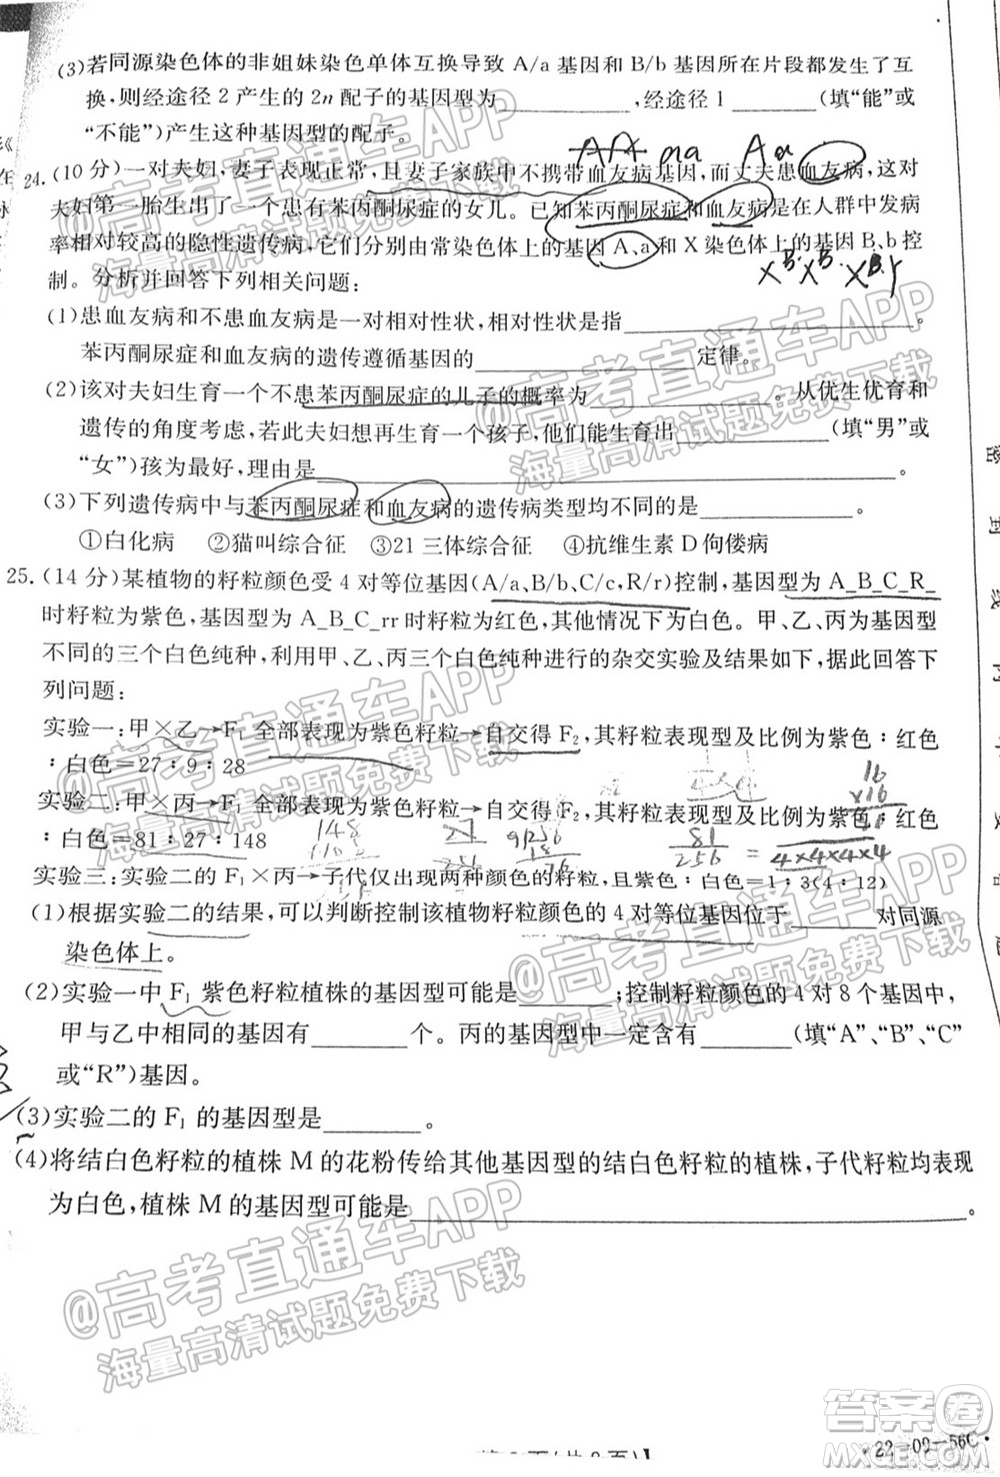 (3)若同源染色体的非姐妹染色单体互换导致 A/a 基因和 B/b 基因所在片段都发生了互
换,则经途径 2 产生的 2n 配子的基因型为__________,经途径 1 ______(填“能”或
“不能”)产生这种基因型的配子。
AA aa Aa
24.(10 分)一对夫妇,妻子表现正常,且妻子家族中不携带血友病基因,而丈夫患血友病,这对
夫妇第一胎生出了一个患有苯丙酮尿症的女儿。已知苯丙酮尿症和血友病是在人群中发病
率相对较高的隐性遗传病,它们分别由常染色体上的基因 A、a 和 X 染色体上的基因 B、b 控
制。分析并回答下列相关问题:
(1)患血友病和不患血友病是一对相对性状,相对性状是指__________________。
苯丙酮尿症和血友病的遗传遵循基因的______________定律。
(2)该对夫妇生育一个不患苯丙酮尿症的儿子的概率为__________。从优生优育和
遗传的角度考虑,若此夫妇想再生育一个孩子,他们能生育______(填“男”或
“女”)孩为最好,理由是____________________________________。
(3)下列遗传病中与苯丙酮尿症和血友病的遗传病类型均不同的是__________。
①白化病 ②猫叫综合征 ③21 三体综合征 ④抗维生素 D 佝偻病
25.(14 分)某植物的籽粒颜色受 4 对等位基因(A/a、B/b、C/c、R/r)控制,基因型为 A_B_C_R_
时籽粒为紫色,基因型为 A_B_C_rr 时籽粒为红色,其他情况下为白色。甲、乙、丙为基因型
不同的三个白色纯种,利用甲、乙、丙三个白色纯种进行的杂交实验及结果如下,据此回答下
列问题:
实验一:甲×乙→F₁ 全部表现为紫色籽粒→自交得 F₂,其籽粒表现型及比例为紫色∶红色
∶白色=27∶9∶28
实验二:甲×丙→F₁ 全部表现为紫色籽粒→自交得 F₂,其籽粒表现型及比例为紫色∶红色
∶白色=81∶27∶148
81/256 = 4×4×4×4
实验三:实验二的 F₁×丙→子代仅出现两种颜色的籽粒,且紫色∶白色=1∶3(4∶12)
(1)根据实验二的结果,可以判断控制该植物籽粒颜色的 4 对等位基因位于________对同源
染色体上。
(2)实验一中 F₁ 紫色籽粒植株的基因型可能是________;控制籽粒颜色的 4 对 8 个基因中,
甲与乙中相同的基因有________个。丙的基因型中一定含有________(填“A”、“B”、“C”
或“R”)基因。
(3)实验二的 F₁ 的基因型是________。
(4)将结白色籽粒的植株 M 的花粉传给其他基因型的结白色籽粒的植株,子代籽粒均表现
为白色,植株 M 的基因型可能是______________________________。
密
封
线
@高考直通车APP
海量高清试题免费下载
@高考直通车APP
海量高清试题免费下载
@高考直通车APP
海量高清试题免费下载
@高考直通车APP
海量高清试题免费下载
@高考直通车APP
海量高清试题免费下载
答案圈
MXQE.COM